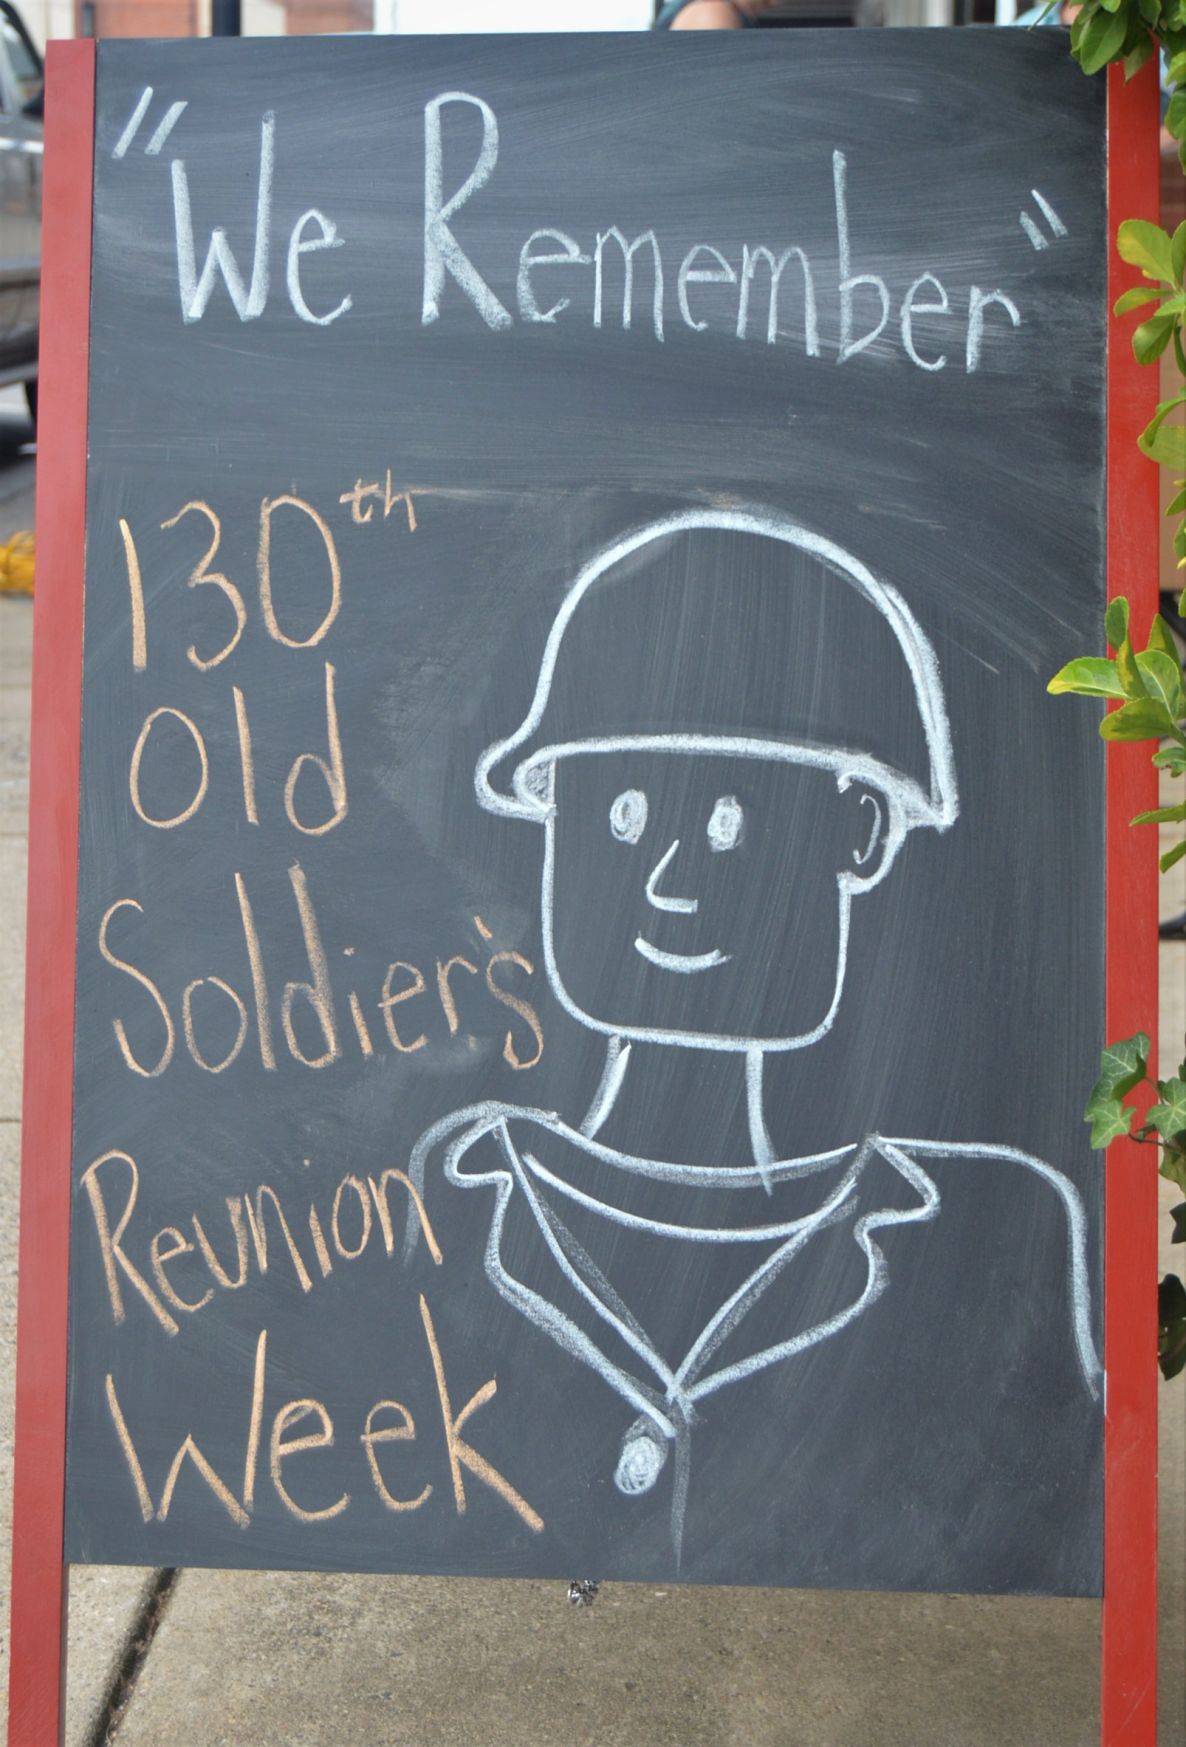 "We Remember"
130th
Old
Soldier's
Reunion
Week